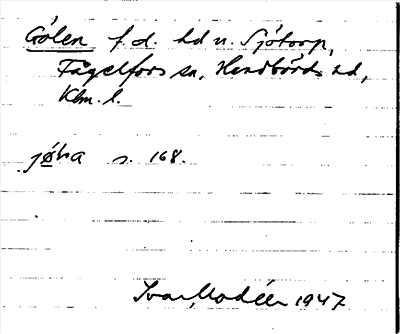 Gölen f.d. ld u. Sjötorp,
Fågelfors sn, Handbörds hd,
Klm. l.
jøha s. 168.
Ivar Modéer 1947